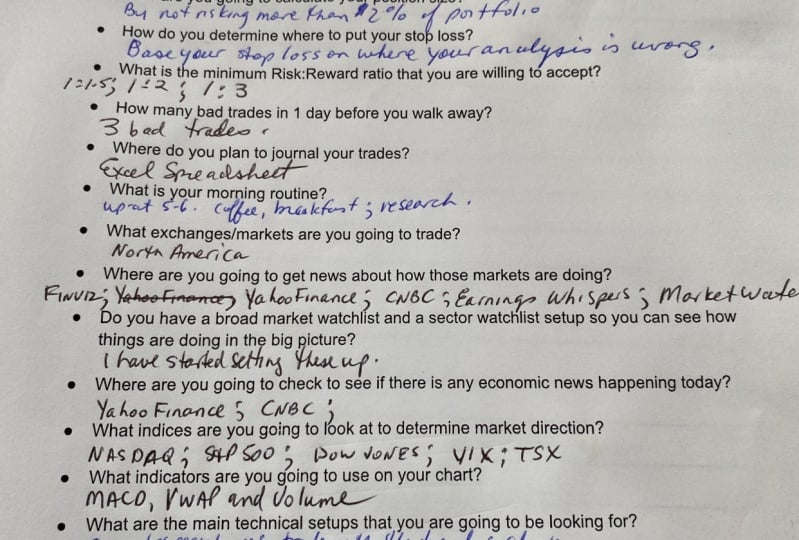 are you going to calculate your position size?
By not risking more than 2% of portfolio
• How do you determine where to put your stop loss?
Base your stop loss on where your analysis is wrong.
• What is the minimum Risk:Reward ratio that you are willing to accept?
1:1.5; 1:2; 1:3
• How many bad trades in 1 day before you walk away?
3 bad trades.
• Where do you plan to journal your trades?
Excel Spreadsheet
• What is your morning routine?
up at 5-6. coffee, breakfast; research.
• What exchanges/markets are you going to trade?
North America
• Where are you going to get news about how those markets are doing?
FINVIZ; Yahoo Finance; Yahoo Finance; CNBC; Earnings Whispers; Market Watc
• Do you have a broad market watchlist and a sector watchlist setup so you can see how
things are doing in the big picture?
I have started setting these up.
• Where are you going to check to see if there is any economic news happening today?
Yahoo Finance; CNBC;
• What indices are you going to look at to determine market direction?
NASDAQ; S&P 500; DOW JONES; VIX; TSX
• What indicators are you going to use on your chart?
MACD, VWAP and Volume
• What are the main technical setups that you are going to be looking for?